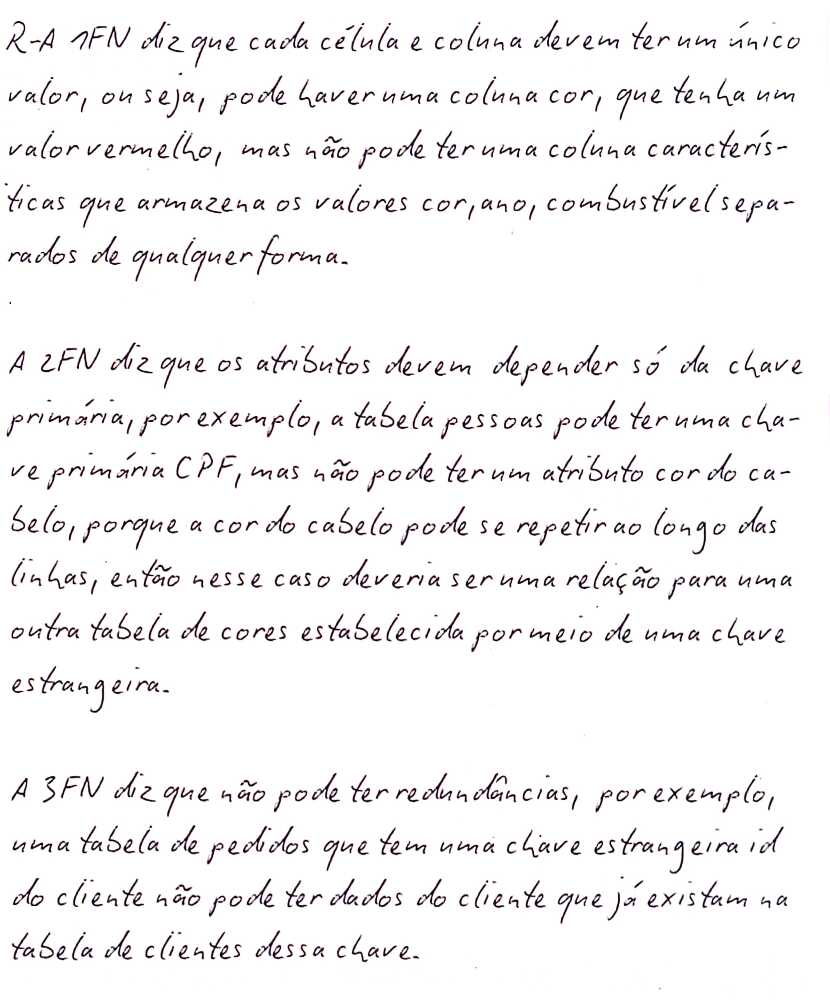 R-A 1FN diz que cada célula e coluna devem ter um único
valor, ou seja, pode haver uma coluna cor, que tenha um
valor vermelho, mas não pode ter uma coluna caracterís-
ticas que armazena os valores cor, ano, combustível sepa-
rados de qualquer forma.
A 2FN diz que os atributos devem depender só da chave
primária, por exemplo, a tabela pessoas pode ter uma cha-
ve primária CPF, mas não pode ter um atributo cor do ca-
belo, porque a cor do cabelo pode se repetir ao longo das
linhas, então nesse caso deveria ser uma relação para uma
outra tabela de cores estabelecida por meio de uma chave
estrangeira.
A 3FN diz que não pode ter redundâncias, por exemplo,
uma tabela de pedidos que tem uma chave estrangeira id
do cliente não pode ter dados do cliente que já existam na
tabela de clientes dessa chave.